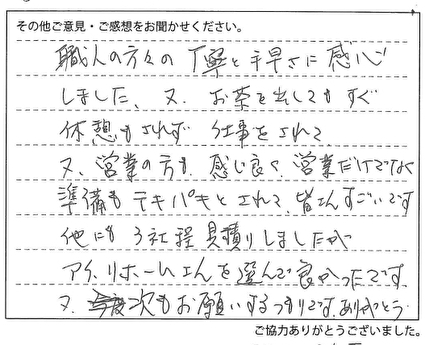 その他ご意見・ご感想をお聞かせください。
職人の方々の丁寧と手早さに感心
しました、又、お茶を出してもすぐ
休憩もされず 仕事をされて
又、営業の方も、感じ良く、営業だけでなく
準備もテキパキとされて、皆さんすごいです
他にも3社程見積りしましたが
アイ、リホームさんを選んで良かったです
又、次もお願いするつもりです。ありがとう
ご協力ありがとうございました。